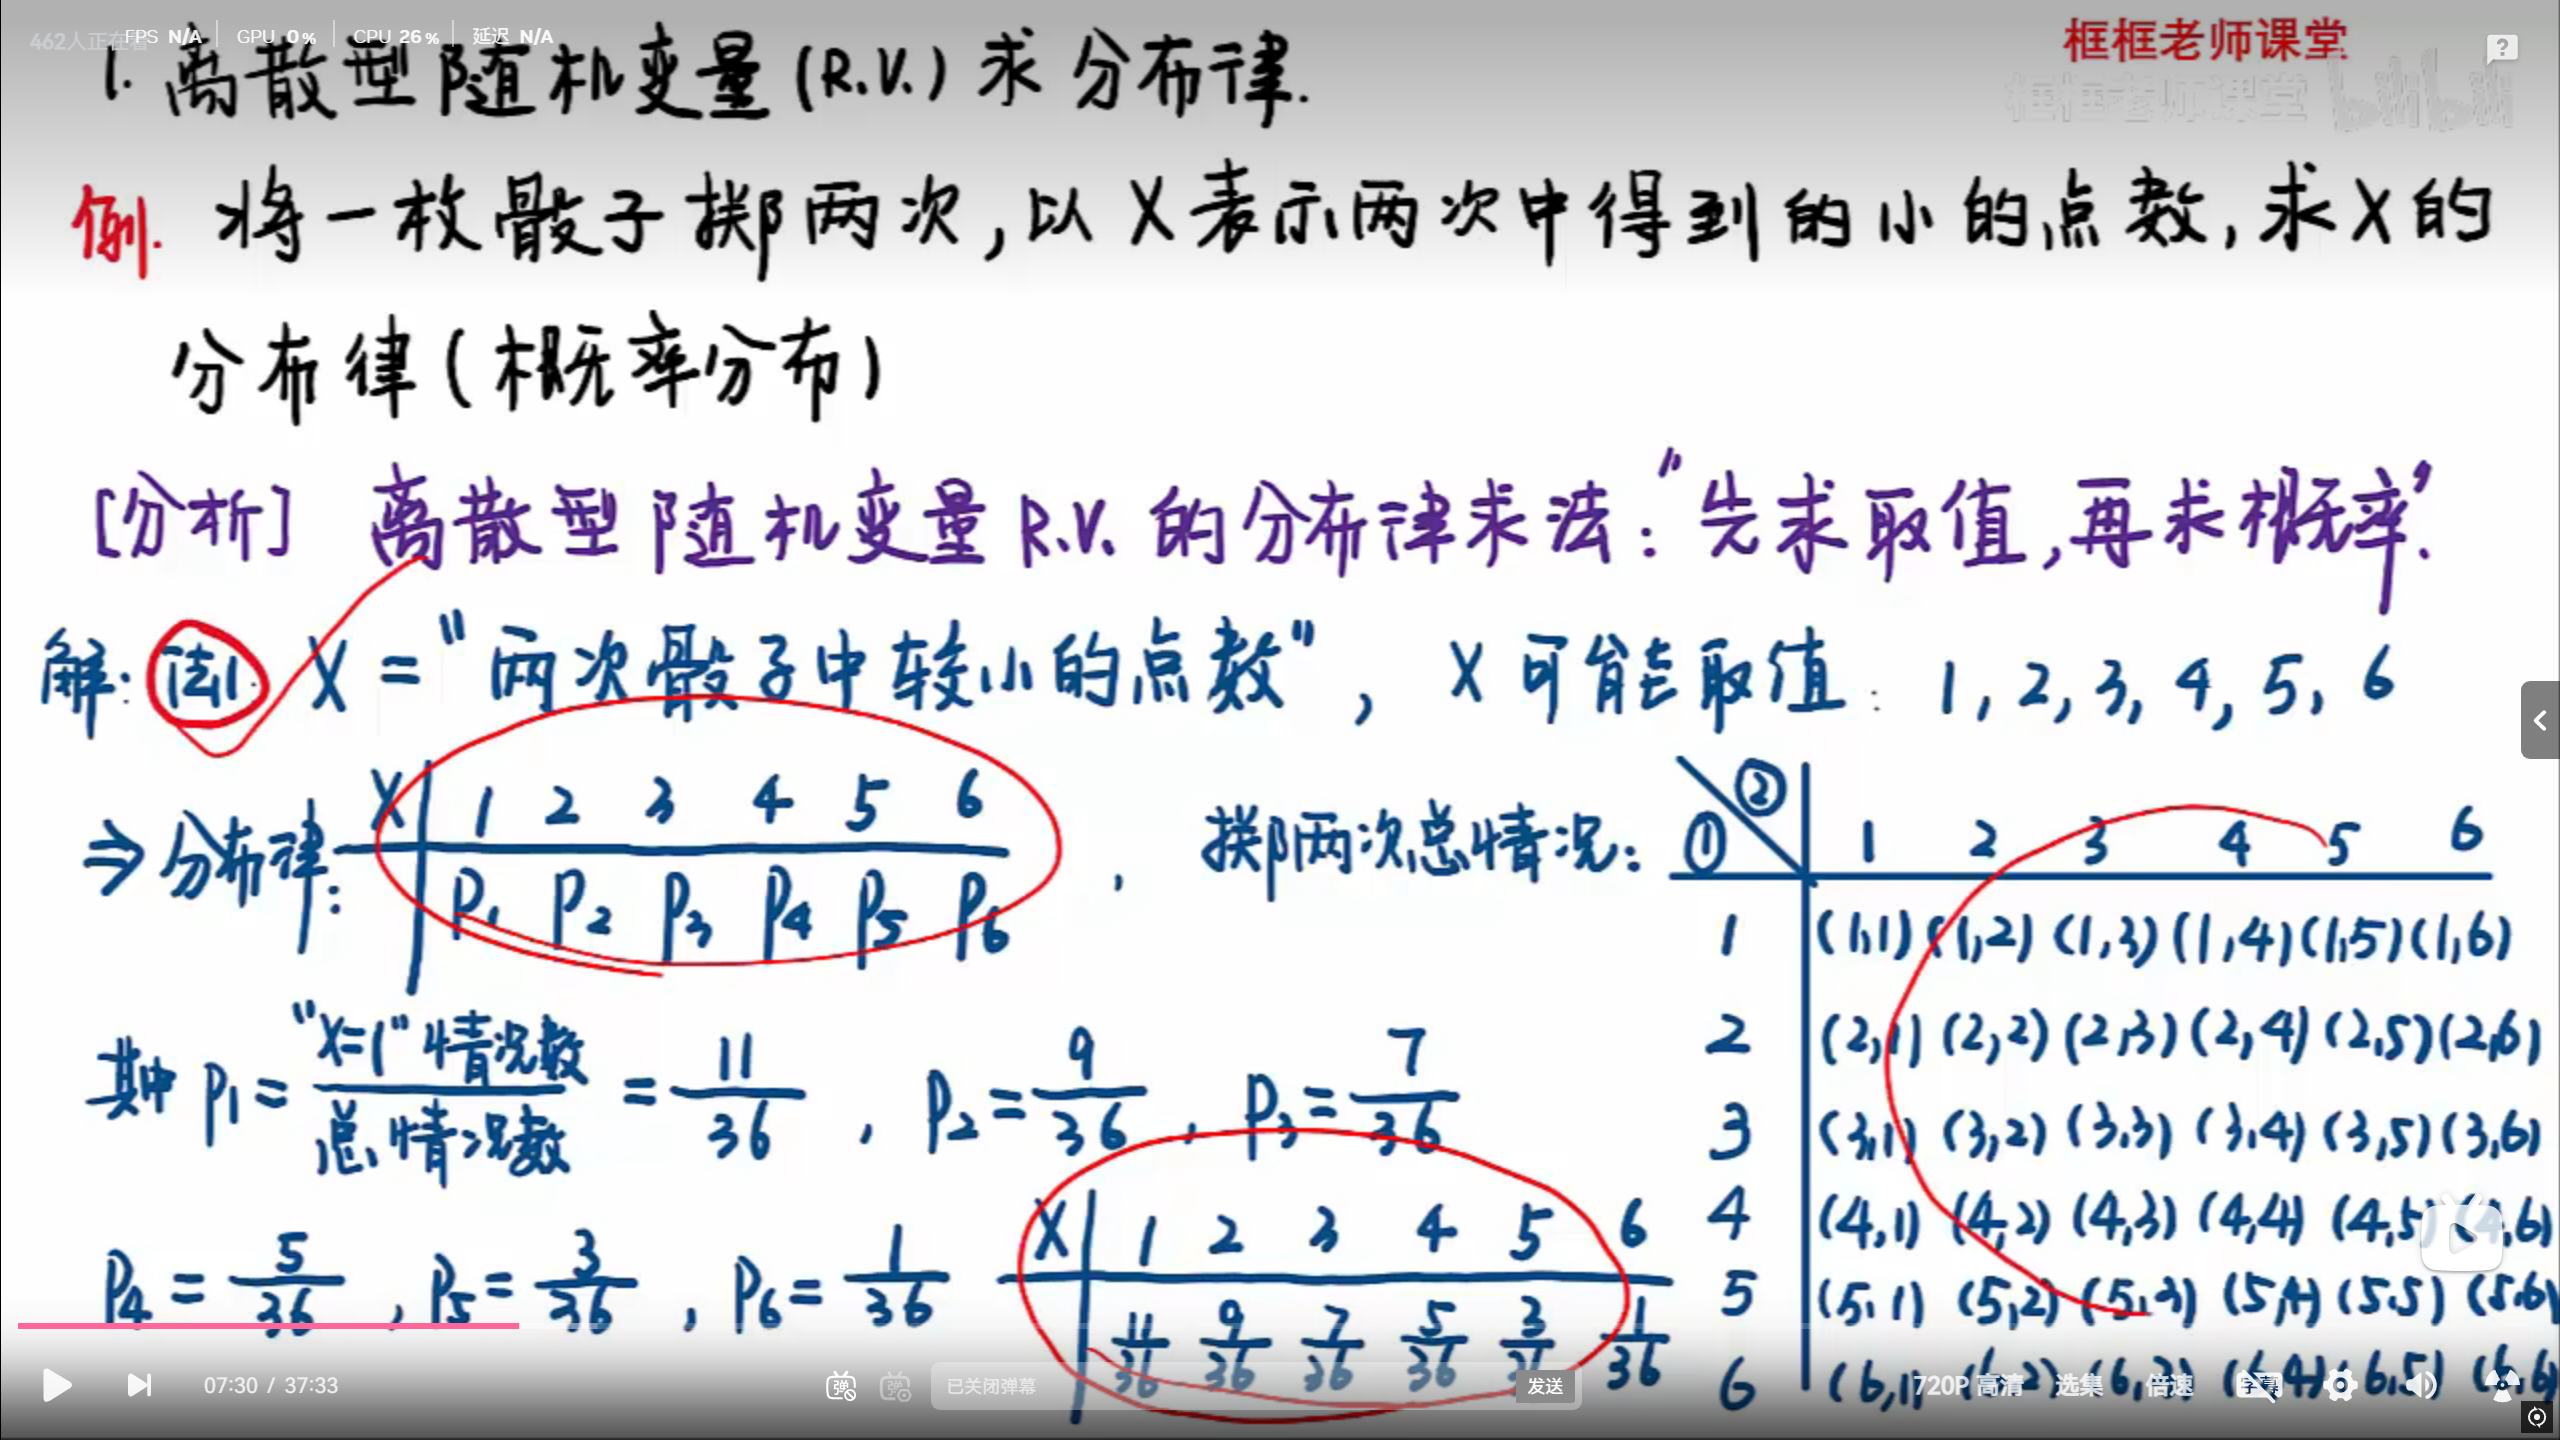 462人正在看 FPS N/A GPU 0% CPU 26% 延迟 N/A
框框老师课堂
框框老师课堂 bilibili
1. 离散型随机变量(R.V.)求分布律.
例. 将一枚骰子掷两次,以X表示两次中得到的小的点数,求X的
分布律(概率分布)
[分析] 离散型随机变量R.V.的分布律求法:"先求取值,再求概率".
解: 法1. X = "两次骰子中较小的点数", X可能取值: 1, 2, 3, 4, 5, 6
⇒分布律: X 1 2 3 4 5 6
P₁ P₂ P₃ P₄ P₅ P₆ ,
掷两次总情况: ① ② 1 2 3 4 5 6
1 (1,1) (1,2) (1,3) (1,4) (1,5) (1,6)
2 (2,1) (2,2) (2,3) (2,4) (2,5) (2,6)
3 (3,1) (3,2) (3,3) (3,4) (3,5) (3,6)
4 (4,1) (4,2) (4,3) (4,4) (4,5) (4,6)
5 (5,1) (5,2) (5,3) (5,4) (5,5) (5,6)
6 (6,1) (6,2) (6,3) (6,4) (6,5) (6,6)
其中 P₁ = "X=1"情况数/总情况数 = 11/36 , P₂ = 9/36 , P₃ = 7/36
P₄ = 5/36 , P₅ = 3/36 , P₆ = 1/36
X 1 2 3 4 5 6
11/36 9/36 7/36 5/36 3/36 1/36
07:30 / 37:33 弹 弹 已关闭弹幕 发送 720P 高清 选集 倍速 字幕